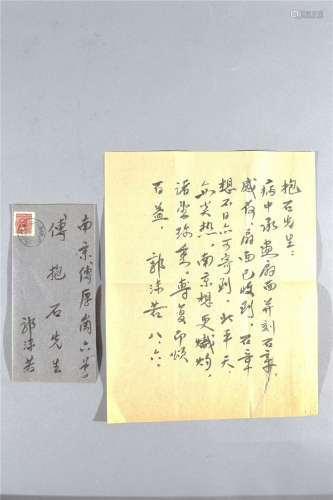 抱石先生：
病中承画扇面并刻石章，
感荷，扇面已收到，石章
想不日亦可寄到，北平天
气炎热，南京想更炽灼，
诸望珍重，专复即颂
百益，
郭沫若 八、六、
南京傅厚岗六号
傅抱石先生
郭沫若